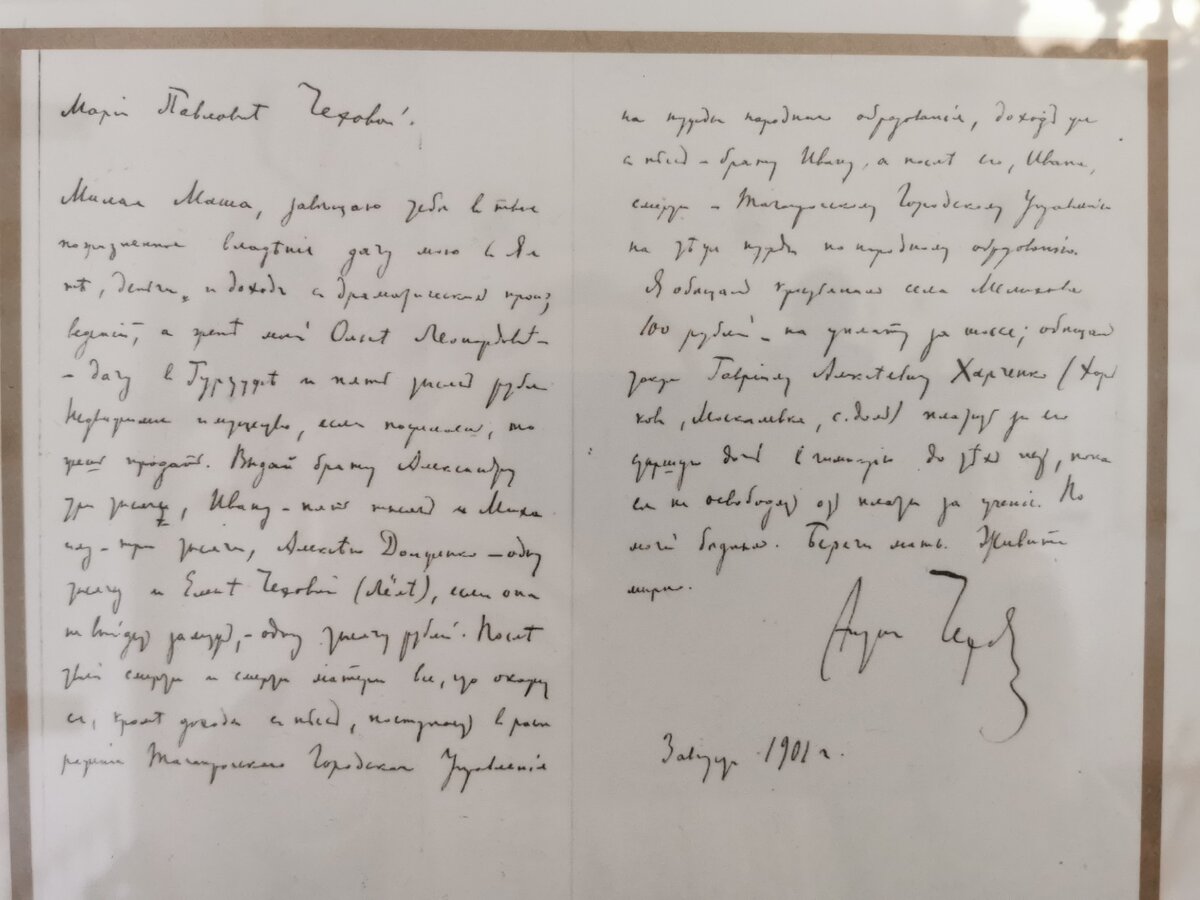 Маріи Павловнѣ Чеховой.
Милая Маша, завѣщаю тебѣ въ твое
пожизненное владѣніе дачу мою въ Ял
тѣ, деньги и доходъ съ драматическихъ произ
веденій, а женѣ моей Ольгѣ Леонардовнѣ –
– дачу въ Гурзуфѣ и пять тысячъ рублей.
Недвижимое имущество, если пожелаешь, мо
жешь продать. Выдай брату Александру
три тысячи, Ивану – пять тысячъ и Миха
илу – три тысячи, Алексѣю Долженко – одну
тысячу и Еленѣ Чеховой (Лёлѣ), если она
не выйдетъ замужъ, – одну тысячу рублей. Послѣ
твоей смерти и смерти матери все, что окажет
ся, кромѣ дохода съ пьесъ, поступаетъ въ расп
ряженіе Таганрогскаго Городского Управленія
на нужды народнаго образованія, доходъ же
съ пьесъ – брату Ивану, а послѣ его, Ивана,
смерти – Таганрогскому Городскому Управленію
на тѣ же нужды по народному образованію.
Я обѣщалъ крестьянамъ села Мелихова
100 рублей – на уплату за шоссе; обѣщалъ
также Гавріилу Алексѣевичу Харченко (Харь
ковъ, Москалевка, с. домъ) платить за его
старшую дочь въ гимназію до тѣхъ поръ, пока
ея не освободятъ отъ платы за ученіе. По
могай бѣднымъ. Береги мать. Живите
мирно.
Антонъ Чеховъ
3 августа 1901 г.